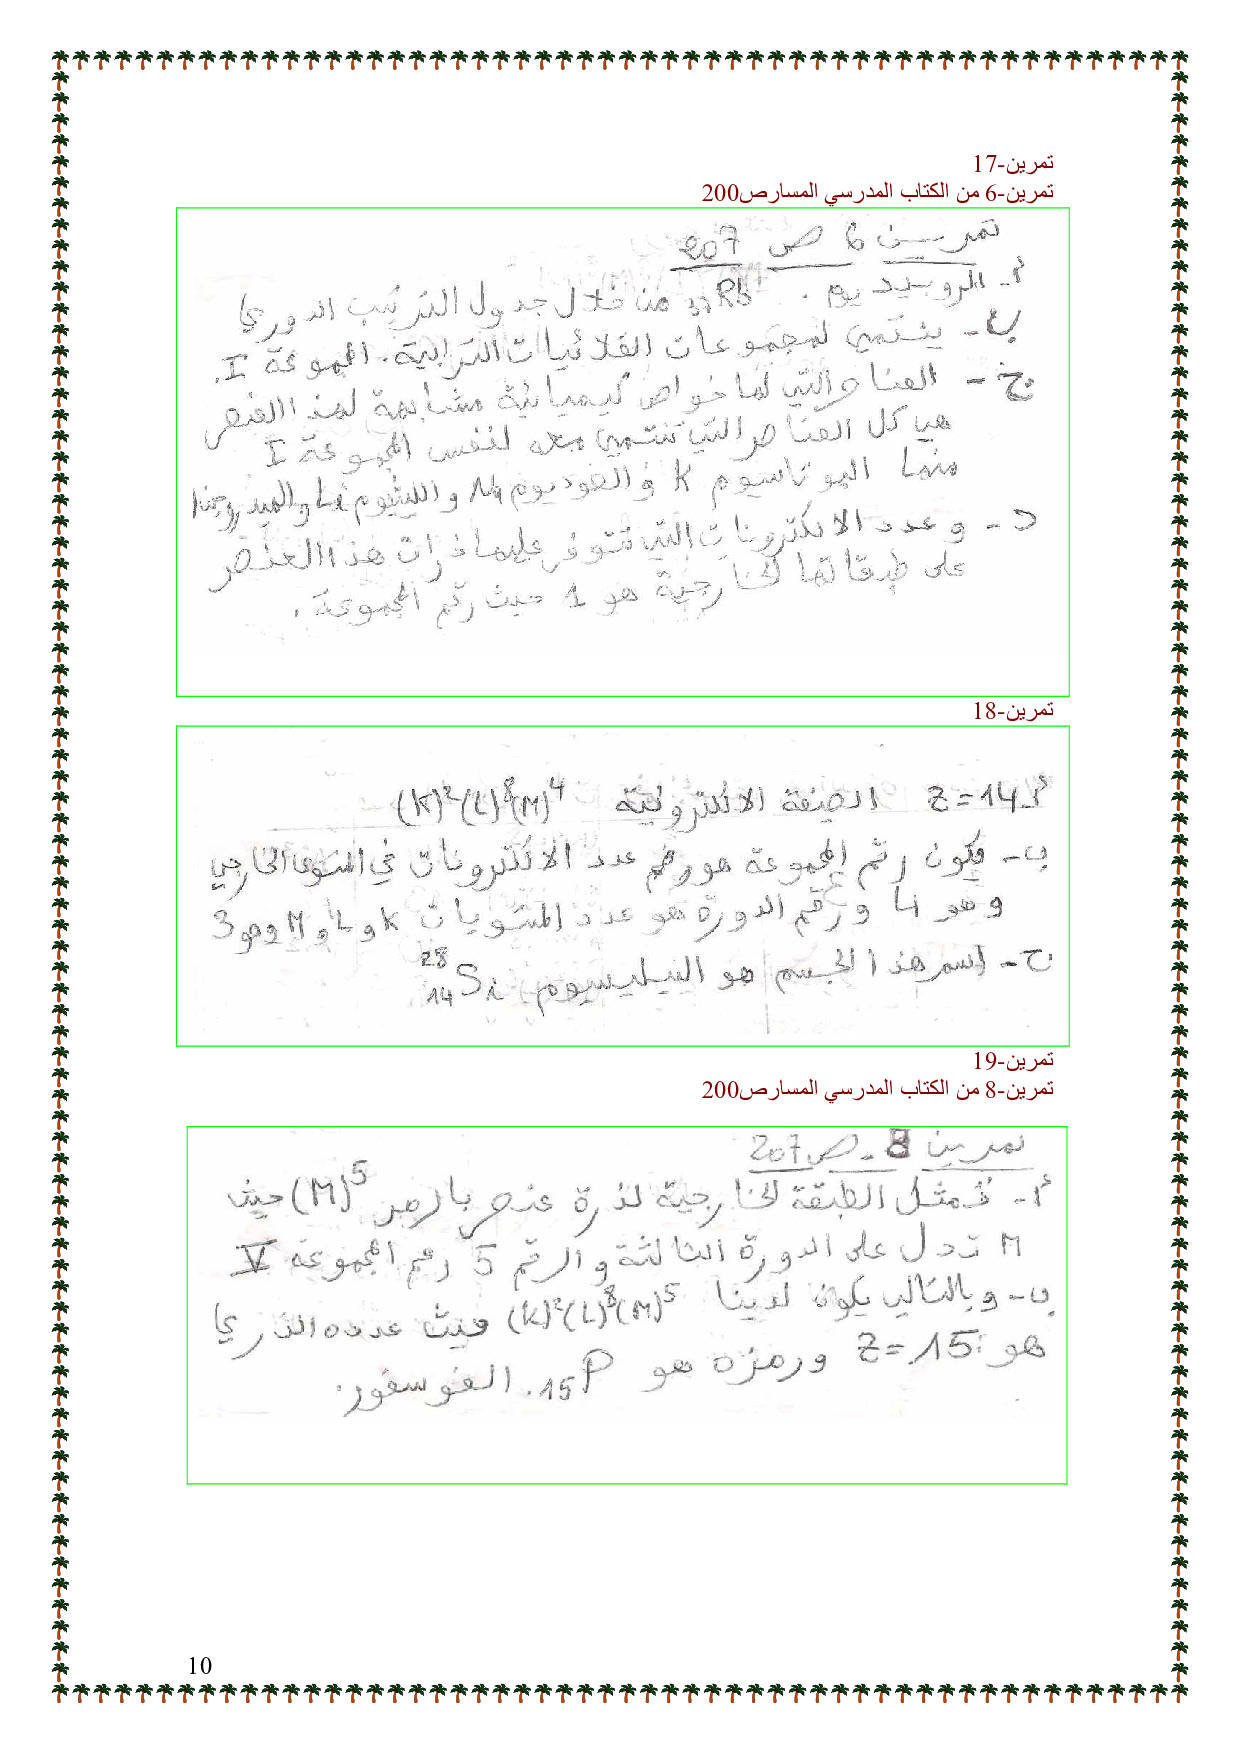 تمرين-17
تمرين-6 من الكتاب المدرسي المسارص200
تمريـن 6 ص 207
أ- الروبيديوم . ₃₇Rb من خلال جدول الترتيب الدوري
ب- ينتمي لمجموعات الفلائيات الترابية. المجموعة I.
ج- العناصر التي لها خواص كيميائية مشابهة لهذا العنصر
هي كل العناصر التي تنتمي معه لنفس المجموعة I
منها البوتاسيوم K و الصوديوم Na و الليثيوم Li والهيدروجين
د- و عدد الالكترونات التي تتوفر عليها ذرات هذا العنصر
على طبقاتها الخارجية هو 1 حيث رقم المجموعة.
تمرين-18
أ Z=14 الصيغة الالكترونية (K)²(L)⁸(M)⁴
ب- فيكون رقم المجموعة هو رقم عدد الالكترونات في المستوى الخارجي
وهو 4 و رقم الدورة هو عدد المستويات K و L و M وهو 3
ج- إسم هذا الجسم هو السيليسيوم ²⁸₁₄Si
تمرين-19
تمرين-8 من الكتاب المدرسي المسارص200
تمرين 8 - ص 207
أ- تمثل الطبقة الخارجية لذرة عنصر بالرمز (M)⁵ حيث
M تدل على الدورة الثالثة و الرقم 5 رقم المجموعة V
ب- و بالتالي يكون لدينا (K)²(L)⁸(M)⁵ حيث عدده الذري
هو Z=15 ورمزه هو ₁₅P. الفوسفور.
10